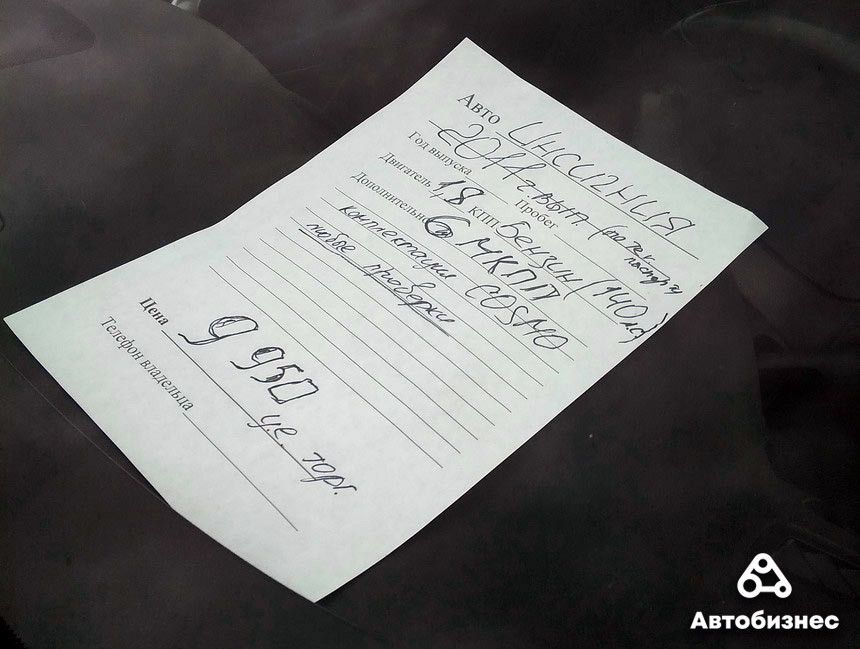 Авто ИНСИГНИЯ
Год выпуска 2011 г.вып. (по тех паспорту
Пробег
Двигатель 1,8 КПП бензин (140 лс)
Дополнительно 6 МКПП
комплектация COSMO
любые проверки
Цена 9 950 у.е. торг.
Телефон владельца
Автобизнес